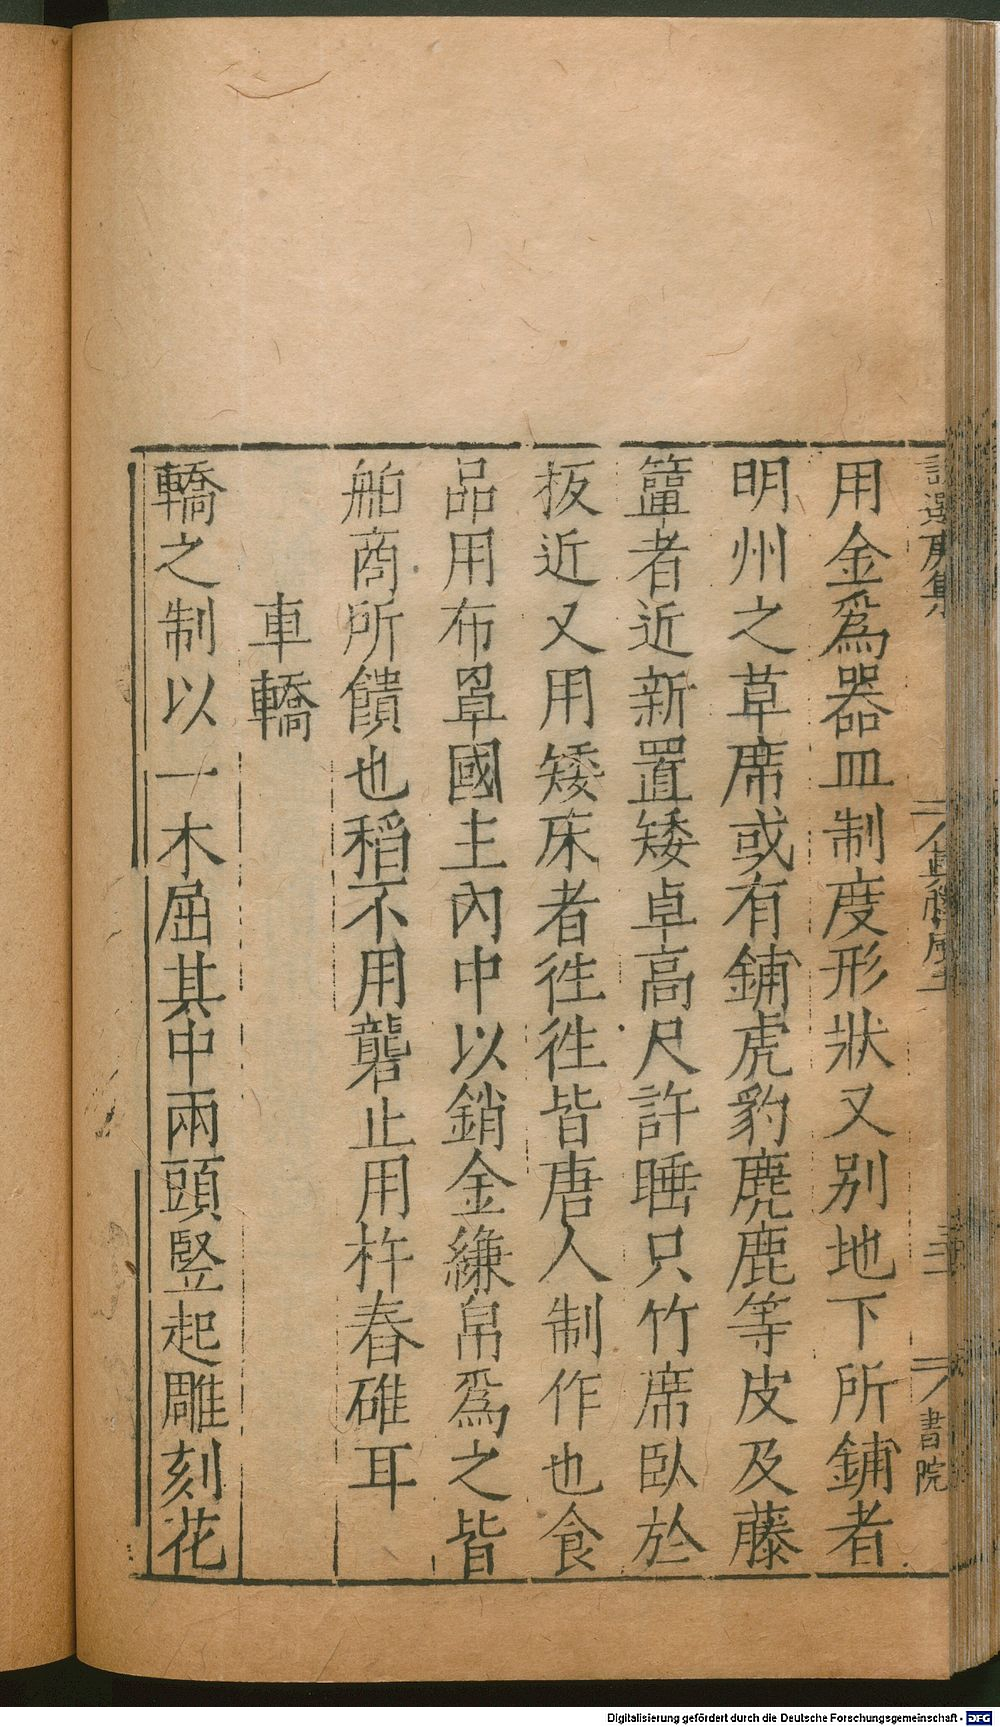 用金爲器皿制度形狀又别地下所鋪者
明州之草席或有鋪虎豹麂鹿等皮及藤
簟者近新置矮卓高尺許睡只竹席臥於
板近又用矮床者徃徃皆唐人制作也食
品用布罩國主內中以銷金縑帛爲之皆
舶商所饋也稻不用礱止用杵舂碓耳
車轎
轎之制以一木屈其中兩頭竪起雕刻花
書院
Digitalisierung gefördert durch die Deutsche Forschungsgemeinschaft - DFG